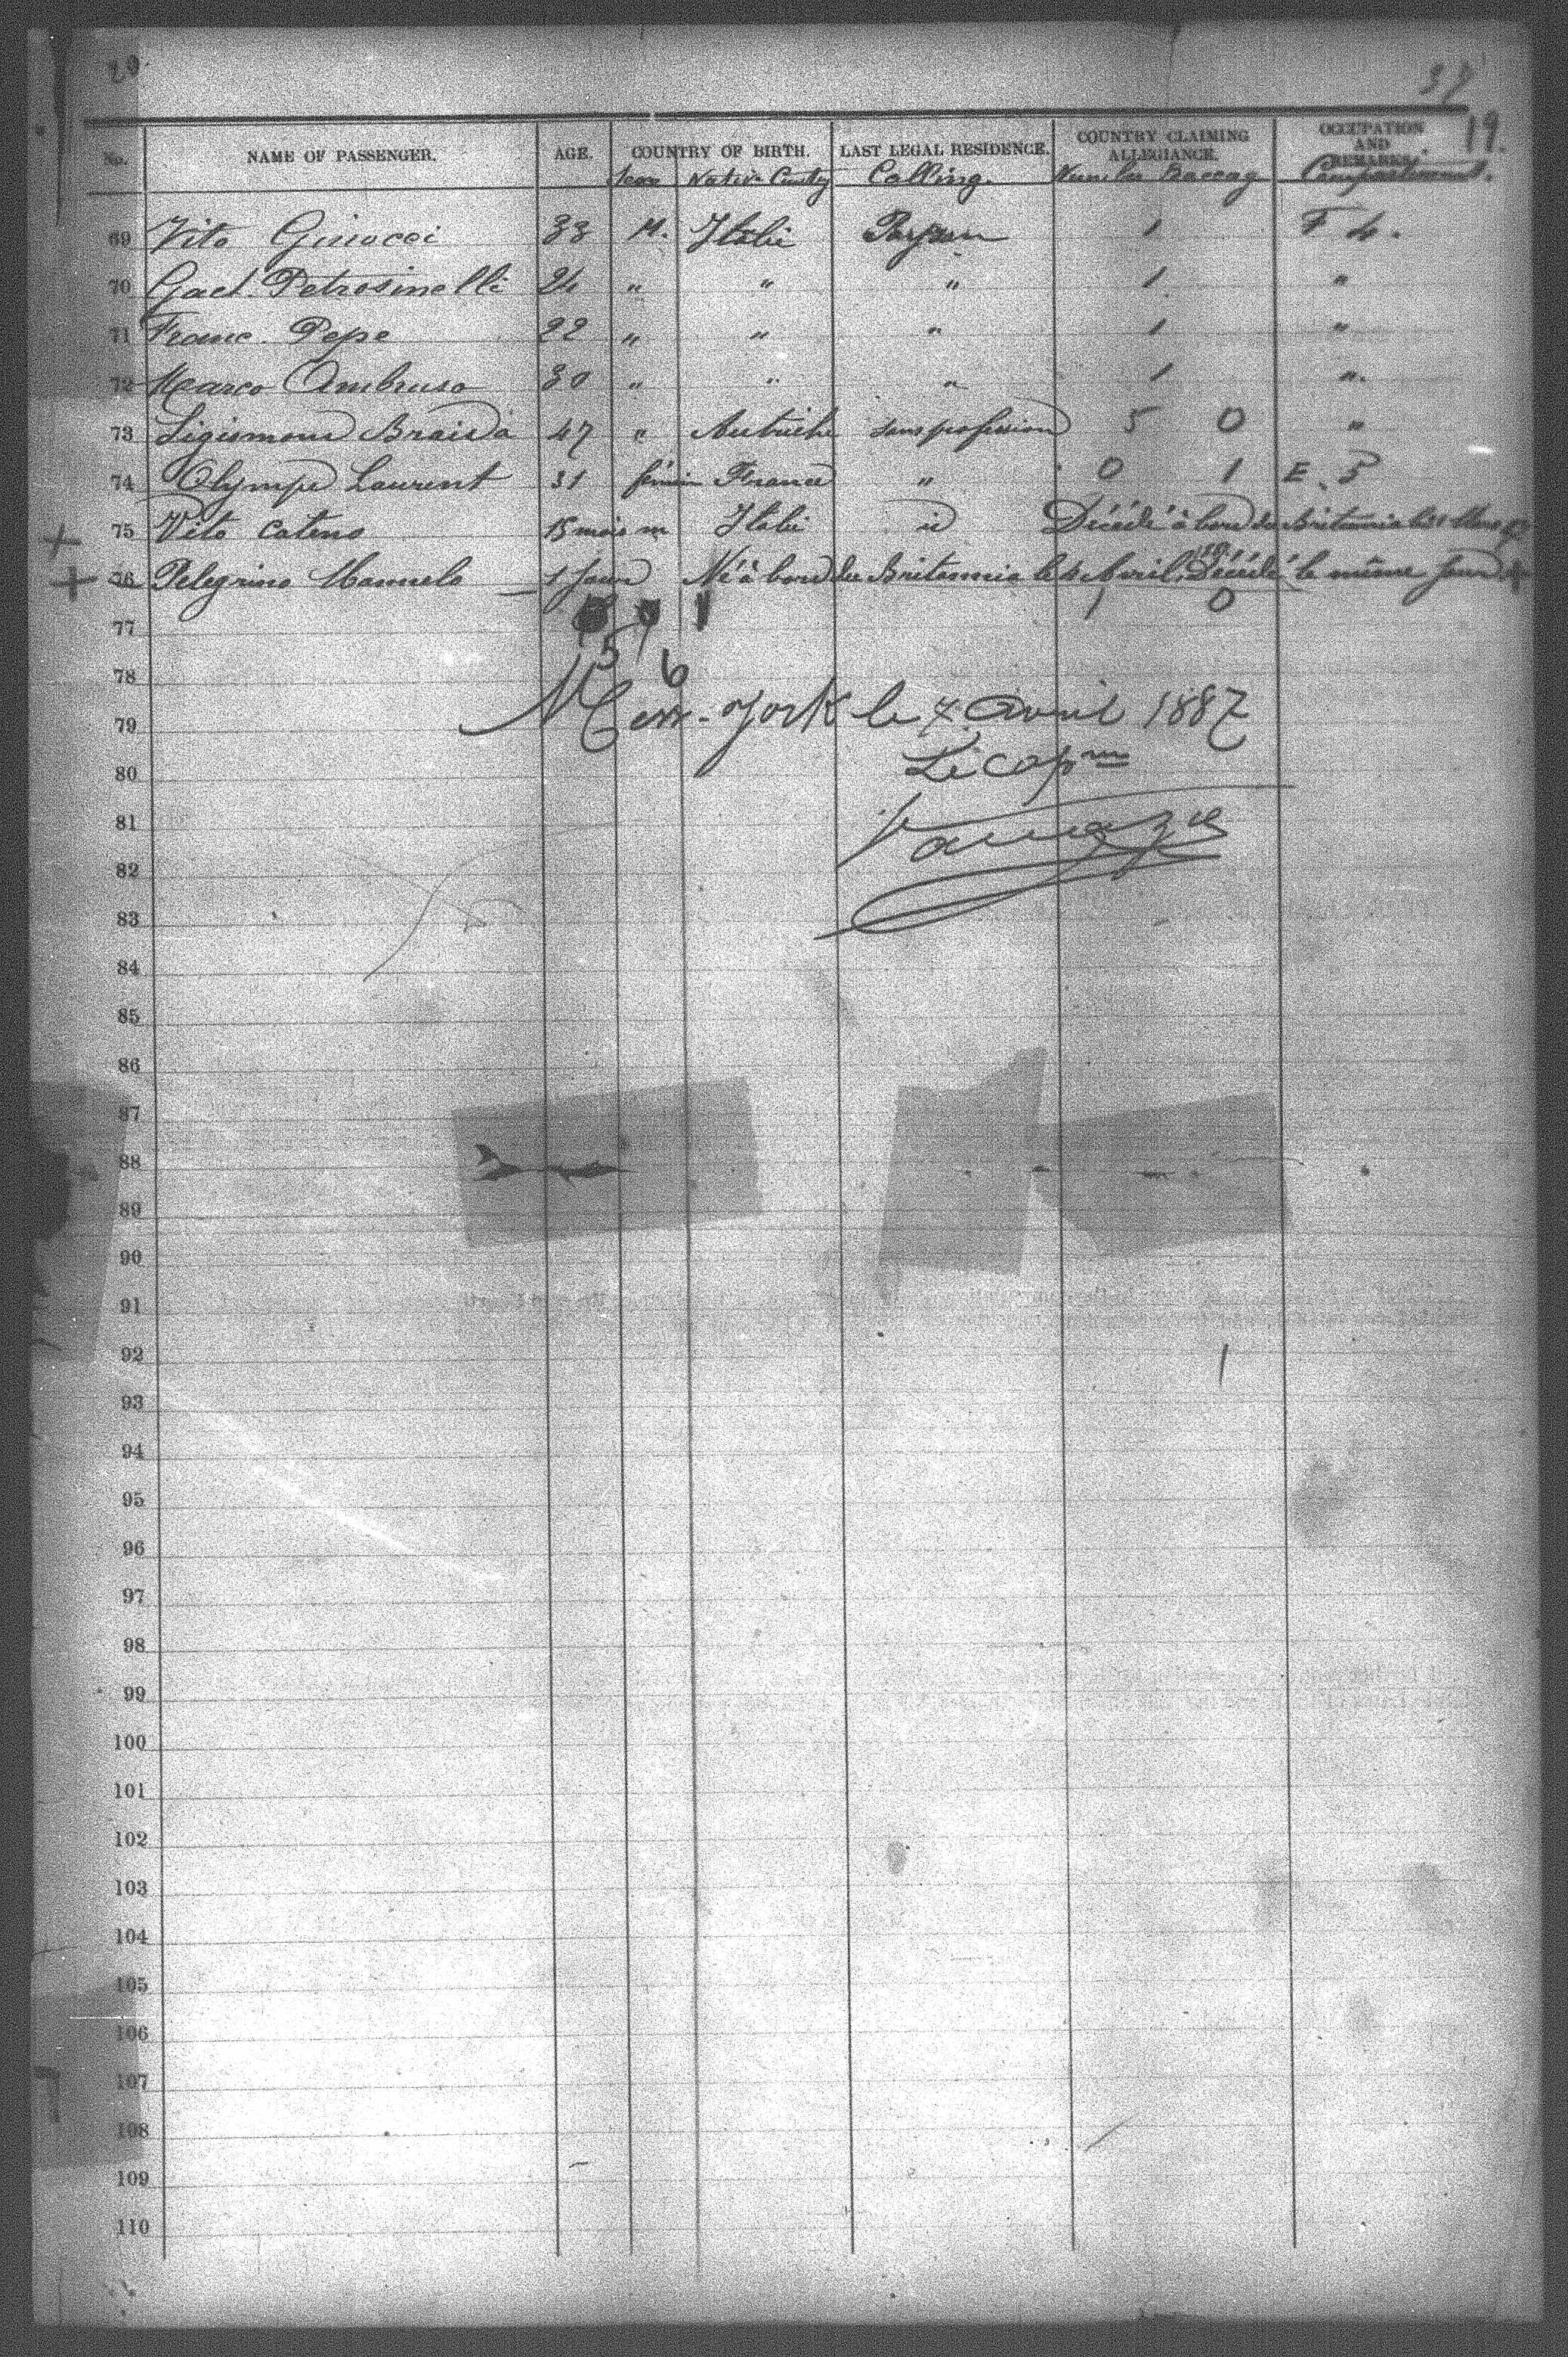 29
37
19.
No. NAME OF PASSENGER. AGE. COUNTRY OF BIRTH. LAST LEGAL RESIDENCE. COUNTRY CLAIMING ALLEGIANCE. OCCUPATION AND REMARKS.
Native Cuntry Calling. Number Baccag Compartment.
69 Vito Ginocci 33 M. Italie Paysan 1 F 4.
70 Gaet. Petrosinelli 24 " " " 1 "
71 Franc. Pepe 22 " " " 1 "
72 Marco Ambruso 30 " " " 1 ".
73 Sigismond Braida 47 " Autriche sans profession 5 0 "
74 Olympe Laurent 31 féminin France " 0 1 E. 5
+ 75 Vito Cateno 15 mois m Italie id Décédé à bord du Britannia le 31 Mars
+ 76 Pelegrino Manuelo 1 Jour Né à bord du Britannia le 4 Avril, Décédé le même jour +
1 0
77
5 1
6
78
79 New-York le 7 Avril 1887
80 Le cap.
81
82
83
84
85
86
87
88
89
90
91
92
93
94
95
96
97
98
99
100
101
102
103
104
105
106
107
108
109
110